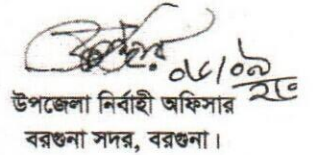 ০৮/০৯/২০
উপজেলা নির্বাহী অফিসার
বরগুনা সদর, বরগুনা।